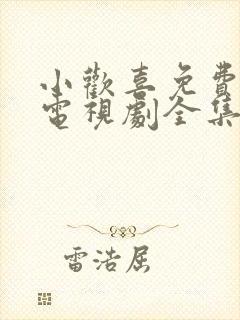 小歡喜免費
電視劇全集
雷浩屈